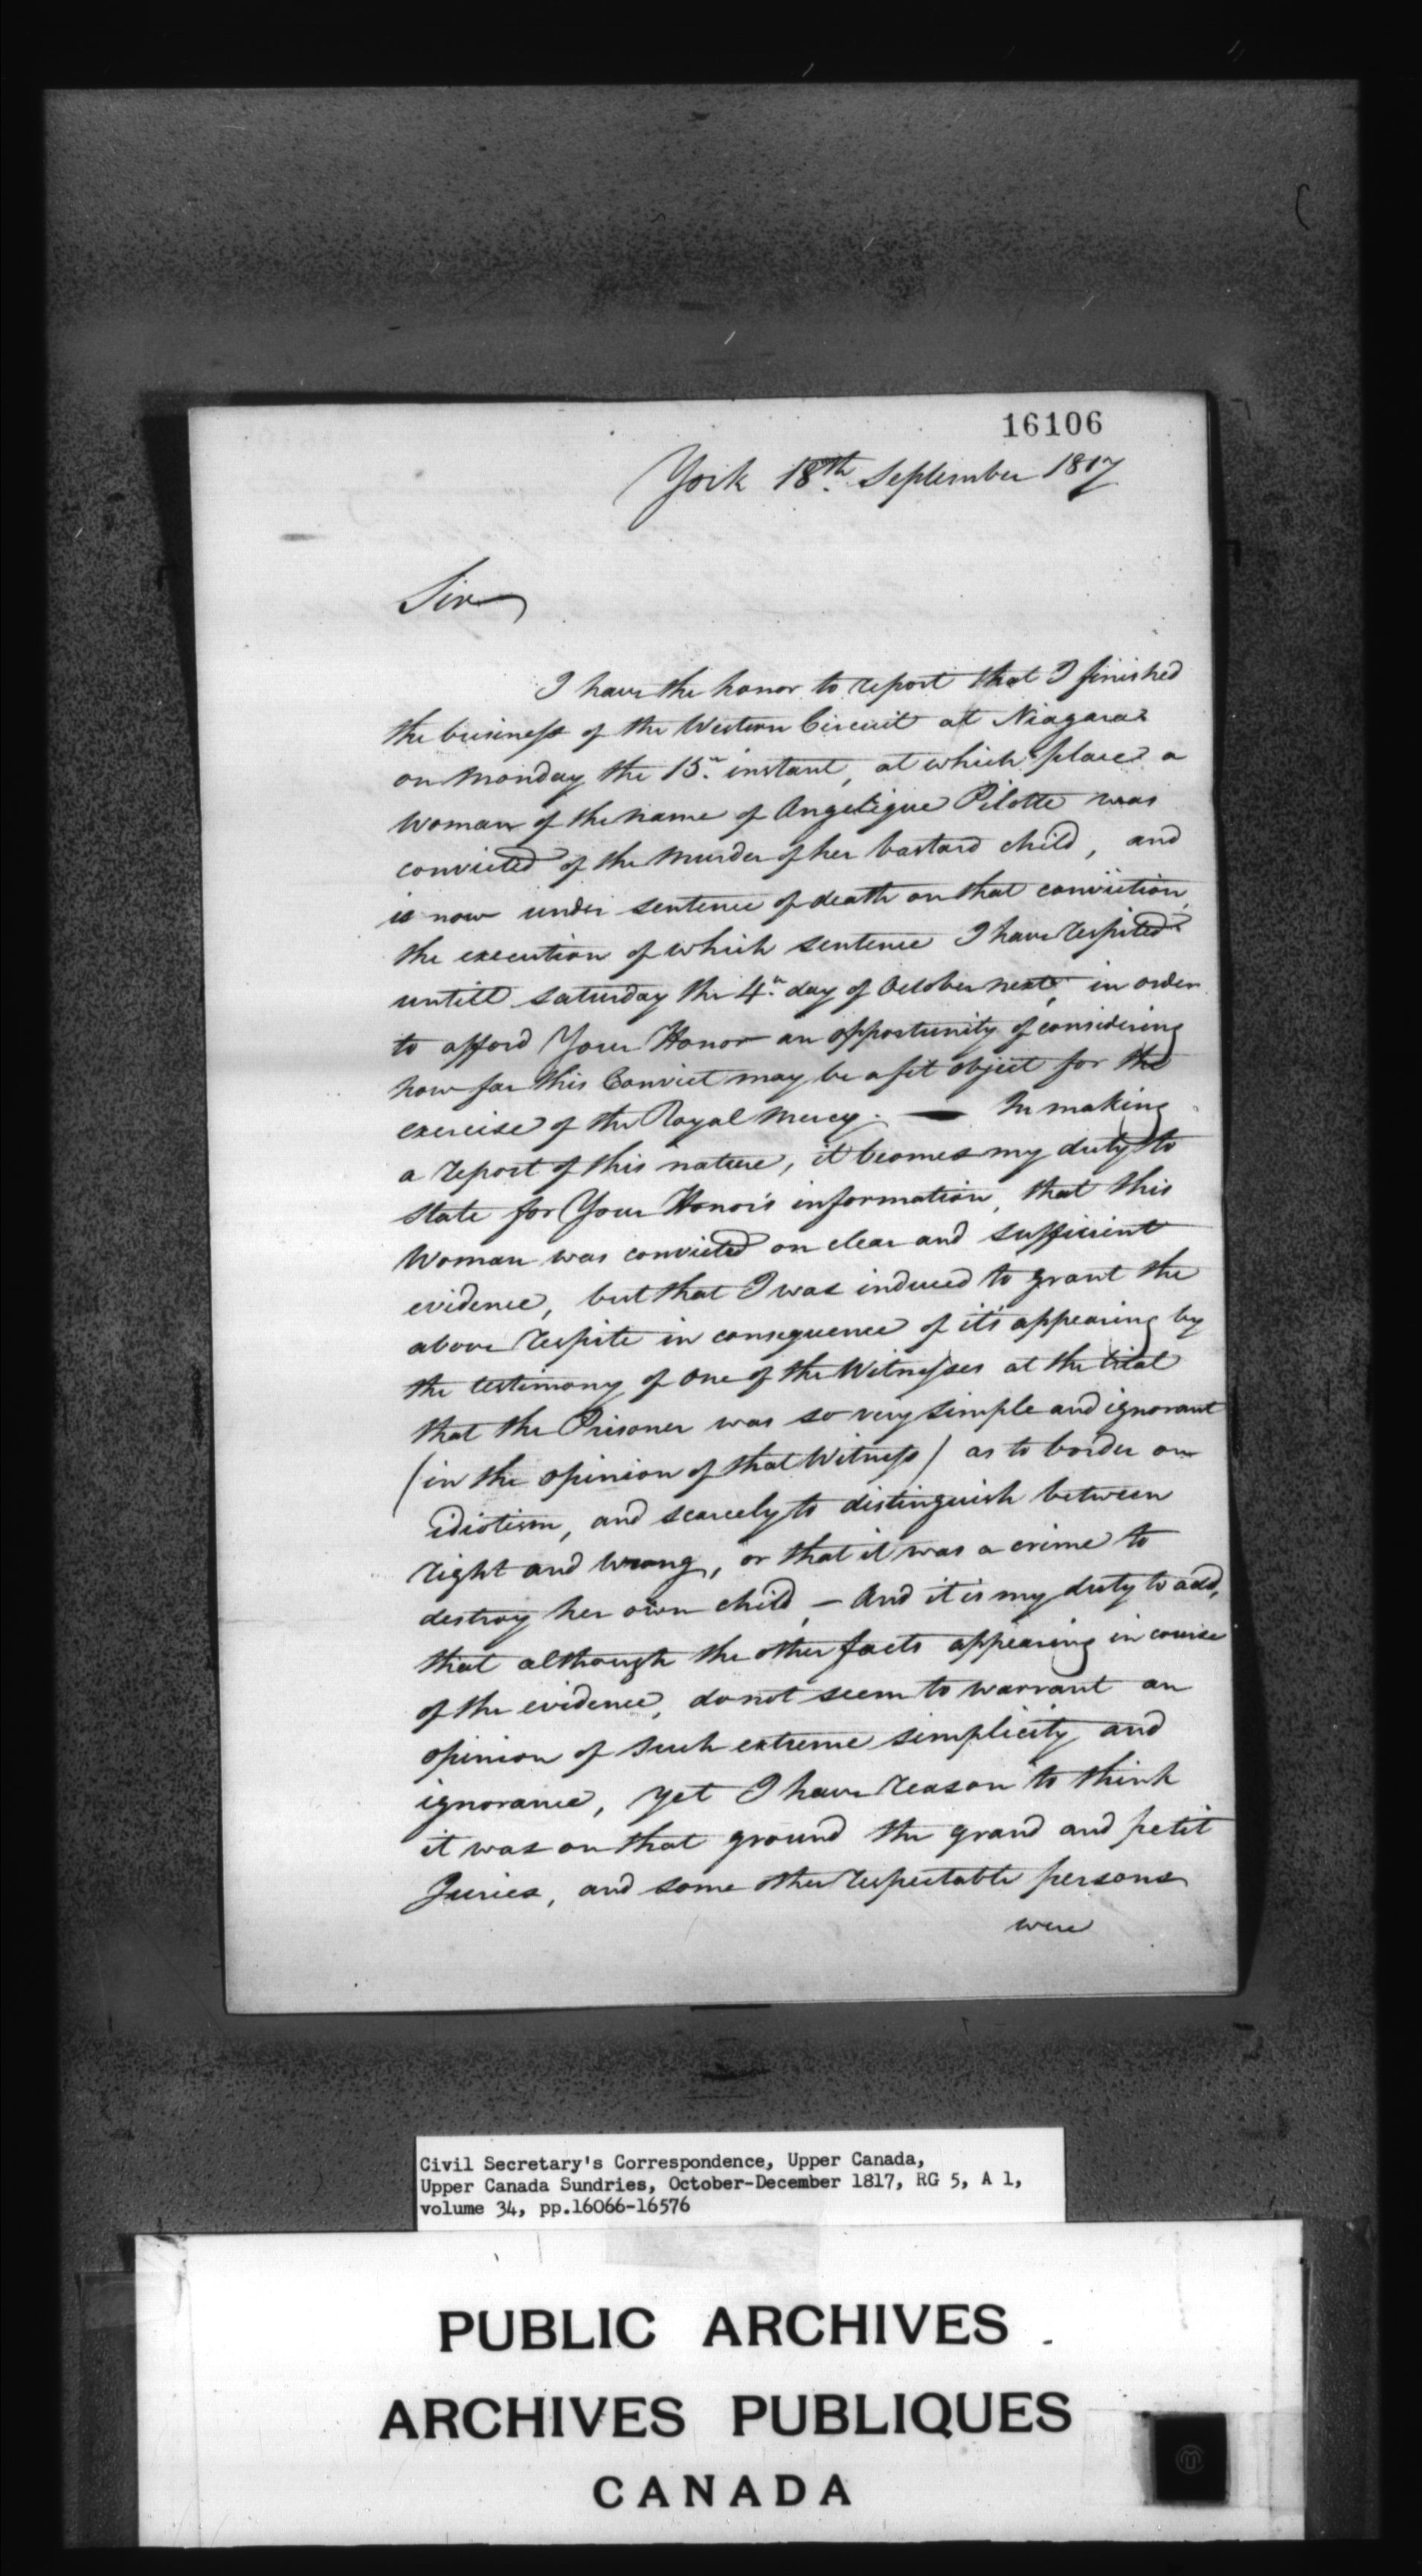 16106
York 18th. September 1817
Sir
I have the honor to report that I finished
the business of the Western Circuit at Niagara
on Monday the 15th. instant, at which place a
Woman of the name of Angelique Pilotte was
convicted of the Murder of her bastard child, and
is now under sentence of death on that conviction,
the execution of which sentence I have respited
untill Saturday the 4th. day of October next, in order
to afford Your Honor an opportunity of considering
how far this Convict may be a fit object for the
exercise of the Royal Mercy. — In making
a report of this nature, it becomes my duty to
state for Your Honor's information, that this
Woman was convicted on clear and sufficient
evidence, but that I was induced to grant the
above respite in consequence of it's appearing by
the testimony of one of the Witnesses at the trial
that the Prisoner was so very simple and ignorant
(in the opinion of that Witness) as to border on
idiotism, and scarcely to distinguish between
right and wrong, or that it was a crime to
destroy her own child, — And it is my duty to add,
that although the other facts appearing in course
of the evidence, do not seem to warrant an
opinion of such extreme simplicity and
ignorance, yet I have reason to think
it was on that ground the grand and petit
Juries, and some other respectable persons
were
Civil Secretary's Correspondence, Upper Canada,
Upper Canada Sundries, October-December 1817, RG 5, A 1,
volume 34, pp.16066-16576
PUBLIC ARCHIVES
ARCHIVES PUBLIQUES
CANADA